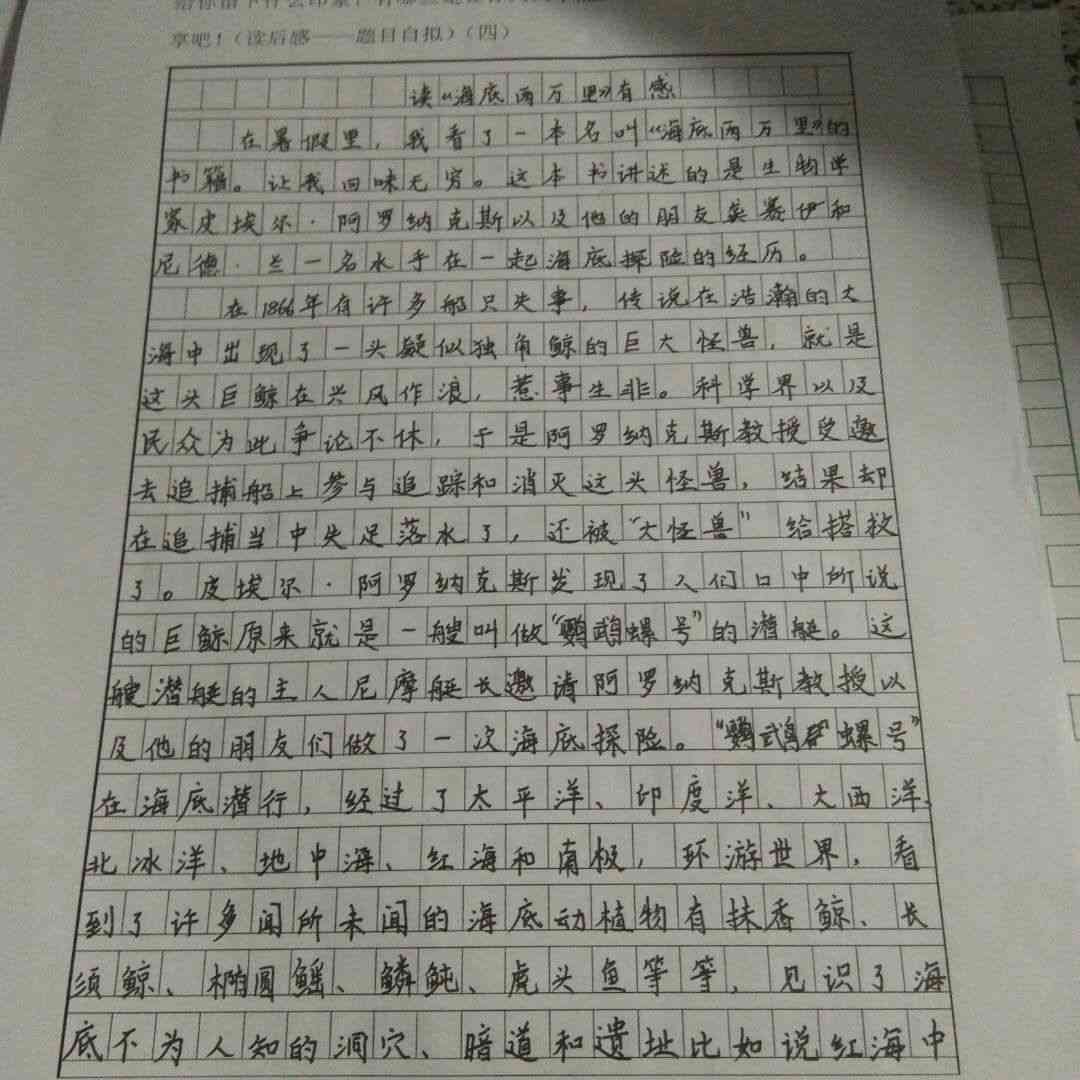 享吧！（读后感——题目自拟）（四）
读《海底两万里》有感
在暑假里，我看了一本名叫《海底两万里》的
书籍。让我回味无穷。这本书讲述的是生物学
家皮埃尔·阿罗纳克斯以及他的朋友英赛伊和
尼德·兰一名水手在一起海底探险的经历。
在1866年有许多船只失事，传说在浩瀚的大
海中出现了一头疑似独角鲸的巨大怪兽，就是
这头巨鲸在兴风作浪，惹事生非。科学界以及
民众为此争论不休，于是阿罗纳克斯教授受邀
去追捕船上参与追踪和消灭这头怪兽，结果却
在追捕当中失足落水了，还被“大怪兽”给搭救
了。皮埃尔·阿罗纳克斯发现了人们口中所说
的巨鲸原来就是一艘叫做“鹦鹉螺号”的潜艇。这
艘潜艇的主人尼摩艇长邀请阿罗纳克斯教授以
及他的朋友们做了一次海底探险。“鹦鹉螺号”
在海底潜行，经过了太平洋、印度洋、大西洋、
北冰洋、地中海、红海和南极，环游世界，看
到了许多闻所未闻的海底动植物有抹香鲸、长
须鲸、椭圆鳐、鳞鲀、虎头鱼等等，见识了海
底不为人知的洞穴、暗道和遗址比如说红海中